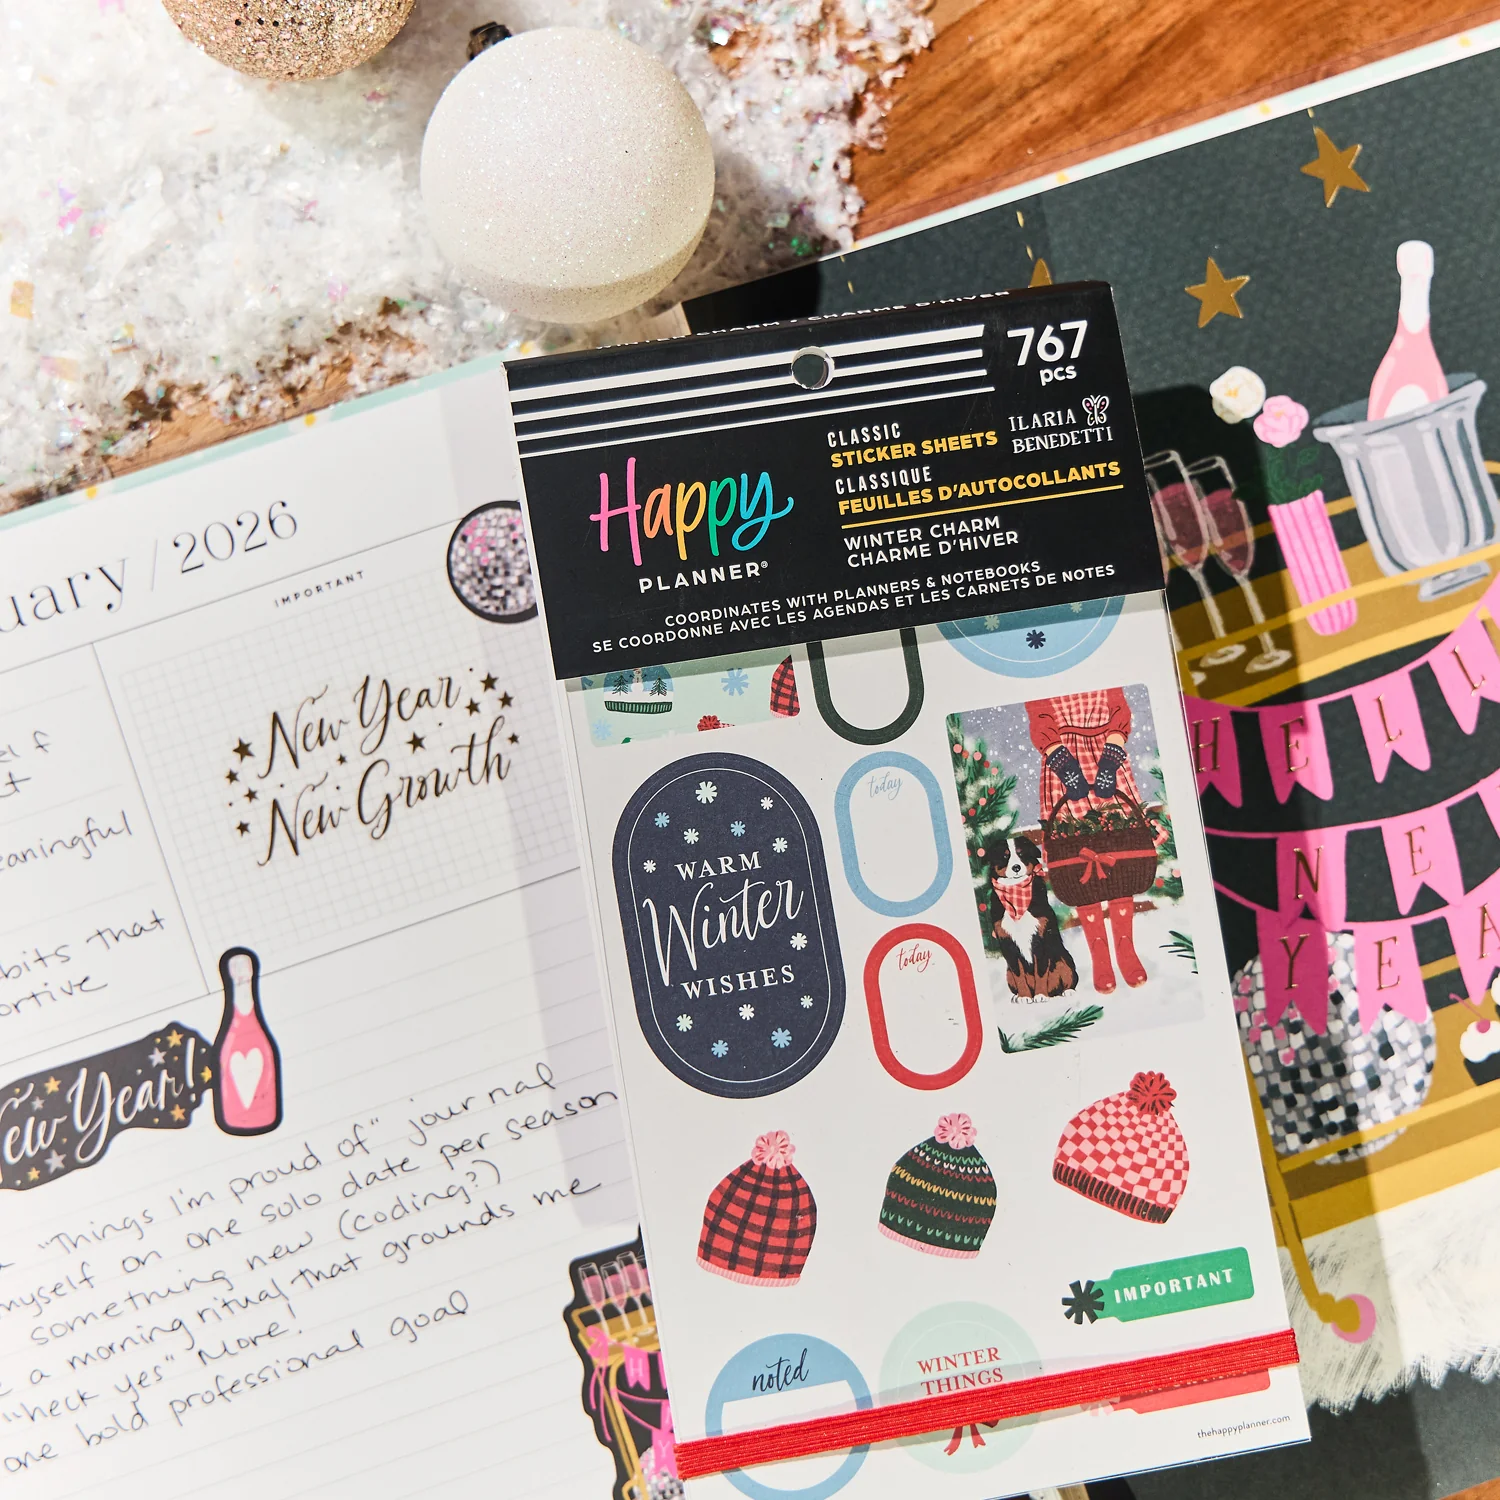 767
pcs
CLASSIC
STICKER SHEETS
CLASSIQUE
FEUILLES D'AUTOCOLLANTS
ILARIA
BENEDETTI
Happy
PLANNER®
WINTER CHARM
CHARME D'HIVER
COORDINATES WITH PLANNERS & NOTEBOOKS
SE COORDONNE AVEC LES AGENDAS ET LES CARNETS DE NOTES
WARM
Winter
WISHES
today
today
IMPORTANT
noted
WINTER
THINGS
thehappyplanner.com
uary / 2026
IMPORTANT
New Year
New Growth
eaningful
bits that
ortive
ew Year!
"Things I'm proud of" journal
myself on one solo date per season
something new (coding?)
a morning ritual that grounds me
"heck yes" More!
one bold professional goal
HELL
NE
YEA